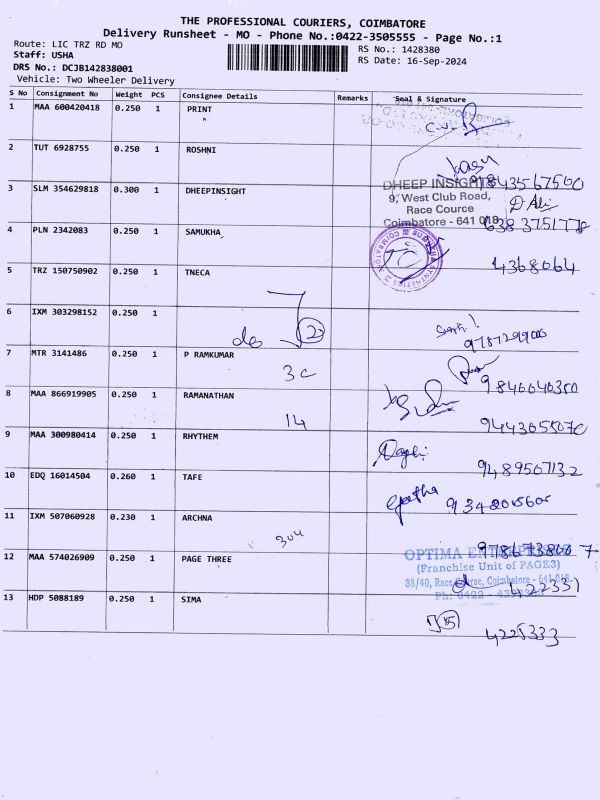 THE PROFESSIONAL COURIERS, COIMBATORE
Delivery Runsheet - MO - Phone No.:0422-3505555 - Page No.:1
Route: LIC TRZ RD MO
Staff: USHA
DRS No.: DCJB142838001
Vehicle: Two Wheeler Delivery
RS No.: 1428380
RS Date: 16-Sep-2024
S No Consignment No Weight PCS Consignee Details Remarks Seal & Signature
1 MAA 600420418 0.250 1 PRINT
2 TUT 6928755 0.250 1 ROSHNI
3 SLM 354629818 0.300 1 DHEEPINSIGHT
DHEEP INSIGHT
9, West Club Road,
Race Cource
Coimbatore - 641 018
4 PLN 2342083 0.250 1 SAMUKHA
5 TRZ 150750902 0.250 1 TNECA
4368064
6 IXM 303298152 0.250 1
7 MTR 3141486 0.250 1 P RAMKUMAR
3c
8 MAA 866919905 0.250 1 RAMANATHAN
14
9 MAA 300980414 0.250 1 RHYTHEM
9489567132
10 EDQ 16014504 0.260 1 TAFE
Geetha
11 IXM 507060928 0.230 1 ARCHNA
304
12 MAA 574026909 0.250 1 PAGE THREE
OPTIMA
(Franchise Unit of PAGE3)
38/40, Race Coimbatore - 641 018.
422331
13 HDP 5088189 0.250 1 SIMA
4225333